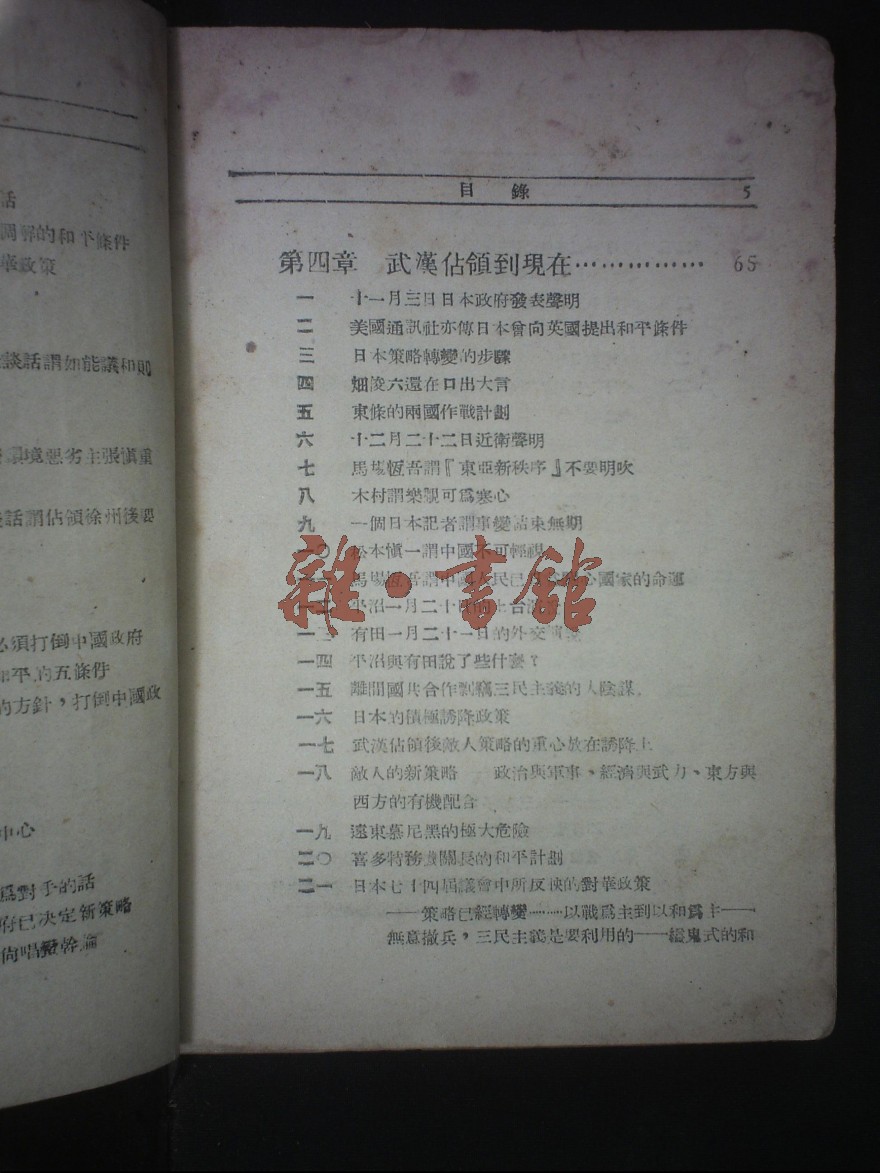 話
和平條件
華政策
談話謂如能議和則
環境惡劣主張慎重
話謂佔領徐州後
必須打倒中國政府
和平的五條件
的方針，打倒中國政
中心
為對手的話
府已決定新策略
尚唱蠻幹論
目錄 5
第四章 武漢佔領到現在…………… 65
一 十一月三日日本政府發表聲明
二 美國通訊社亦傳日本曾向英國提出和平條件
三 日本策略轉變的步驟
四 畑陵六還在口出大言
五 東條的兩國作戰計劃
六 十二月二十二日近衛聲明
七 馬場恆吾謂『東亞新秩序』不要明吹
八 木村謂樂觀可為寒心
九 一個日本記者謂事變結束無期
一〇 松本慎一謂中國不可輕視
一一 馬場恆吾謂中國人民已 心國家的命運
一二 平沼一月二十 上台
一三 有田一月二十一日的外交
一四 平沼與有田說了些什麼？
一五 離間國共合作剽竊三民主義的大陰謀
一六 日本的積極誘降政策
一七 武漢佔領後敵人策略的重心放在誘降上
一八 敵人的新策略——政治與軍事、經濟與武力、東方與
西方的有機配合
一九 遠東慕尼黑的極大危險
二〇 喜多特務機關長的和平計劃
二一 日本七十四屆議會中所反映的對華政策
——策略已經轉變………以戰為主到以和為主——
無意撤兵，三民主義是要利用的——鬼式的和
雜·書館